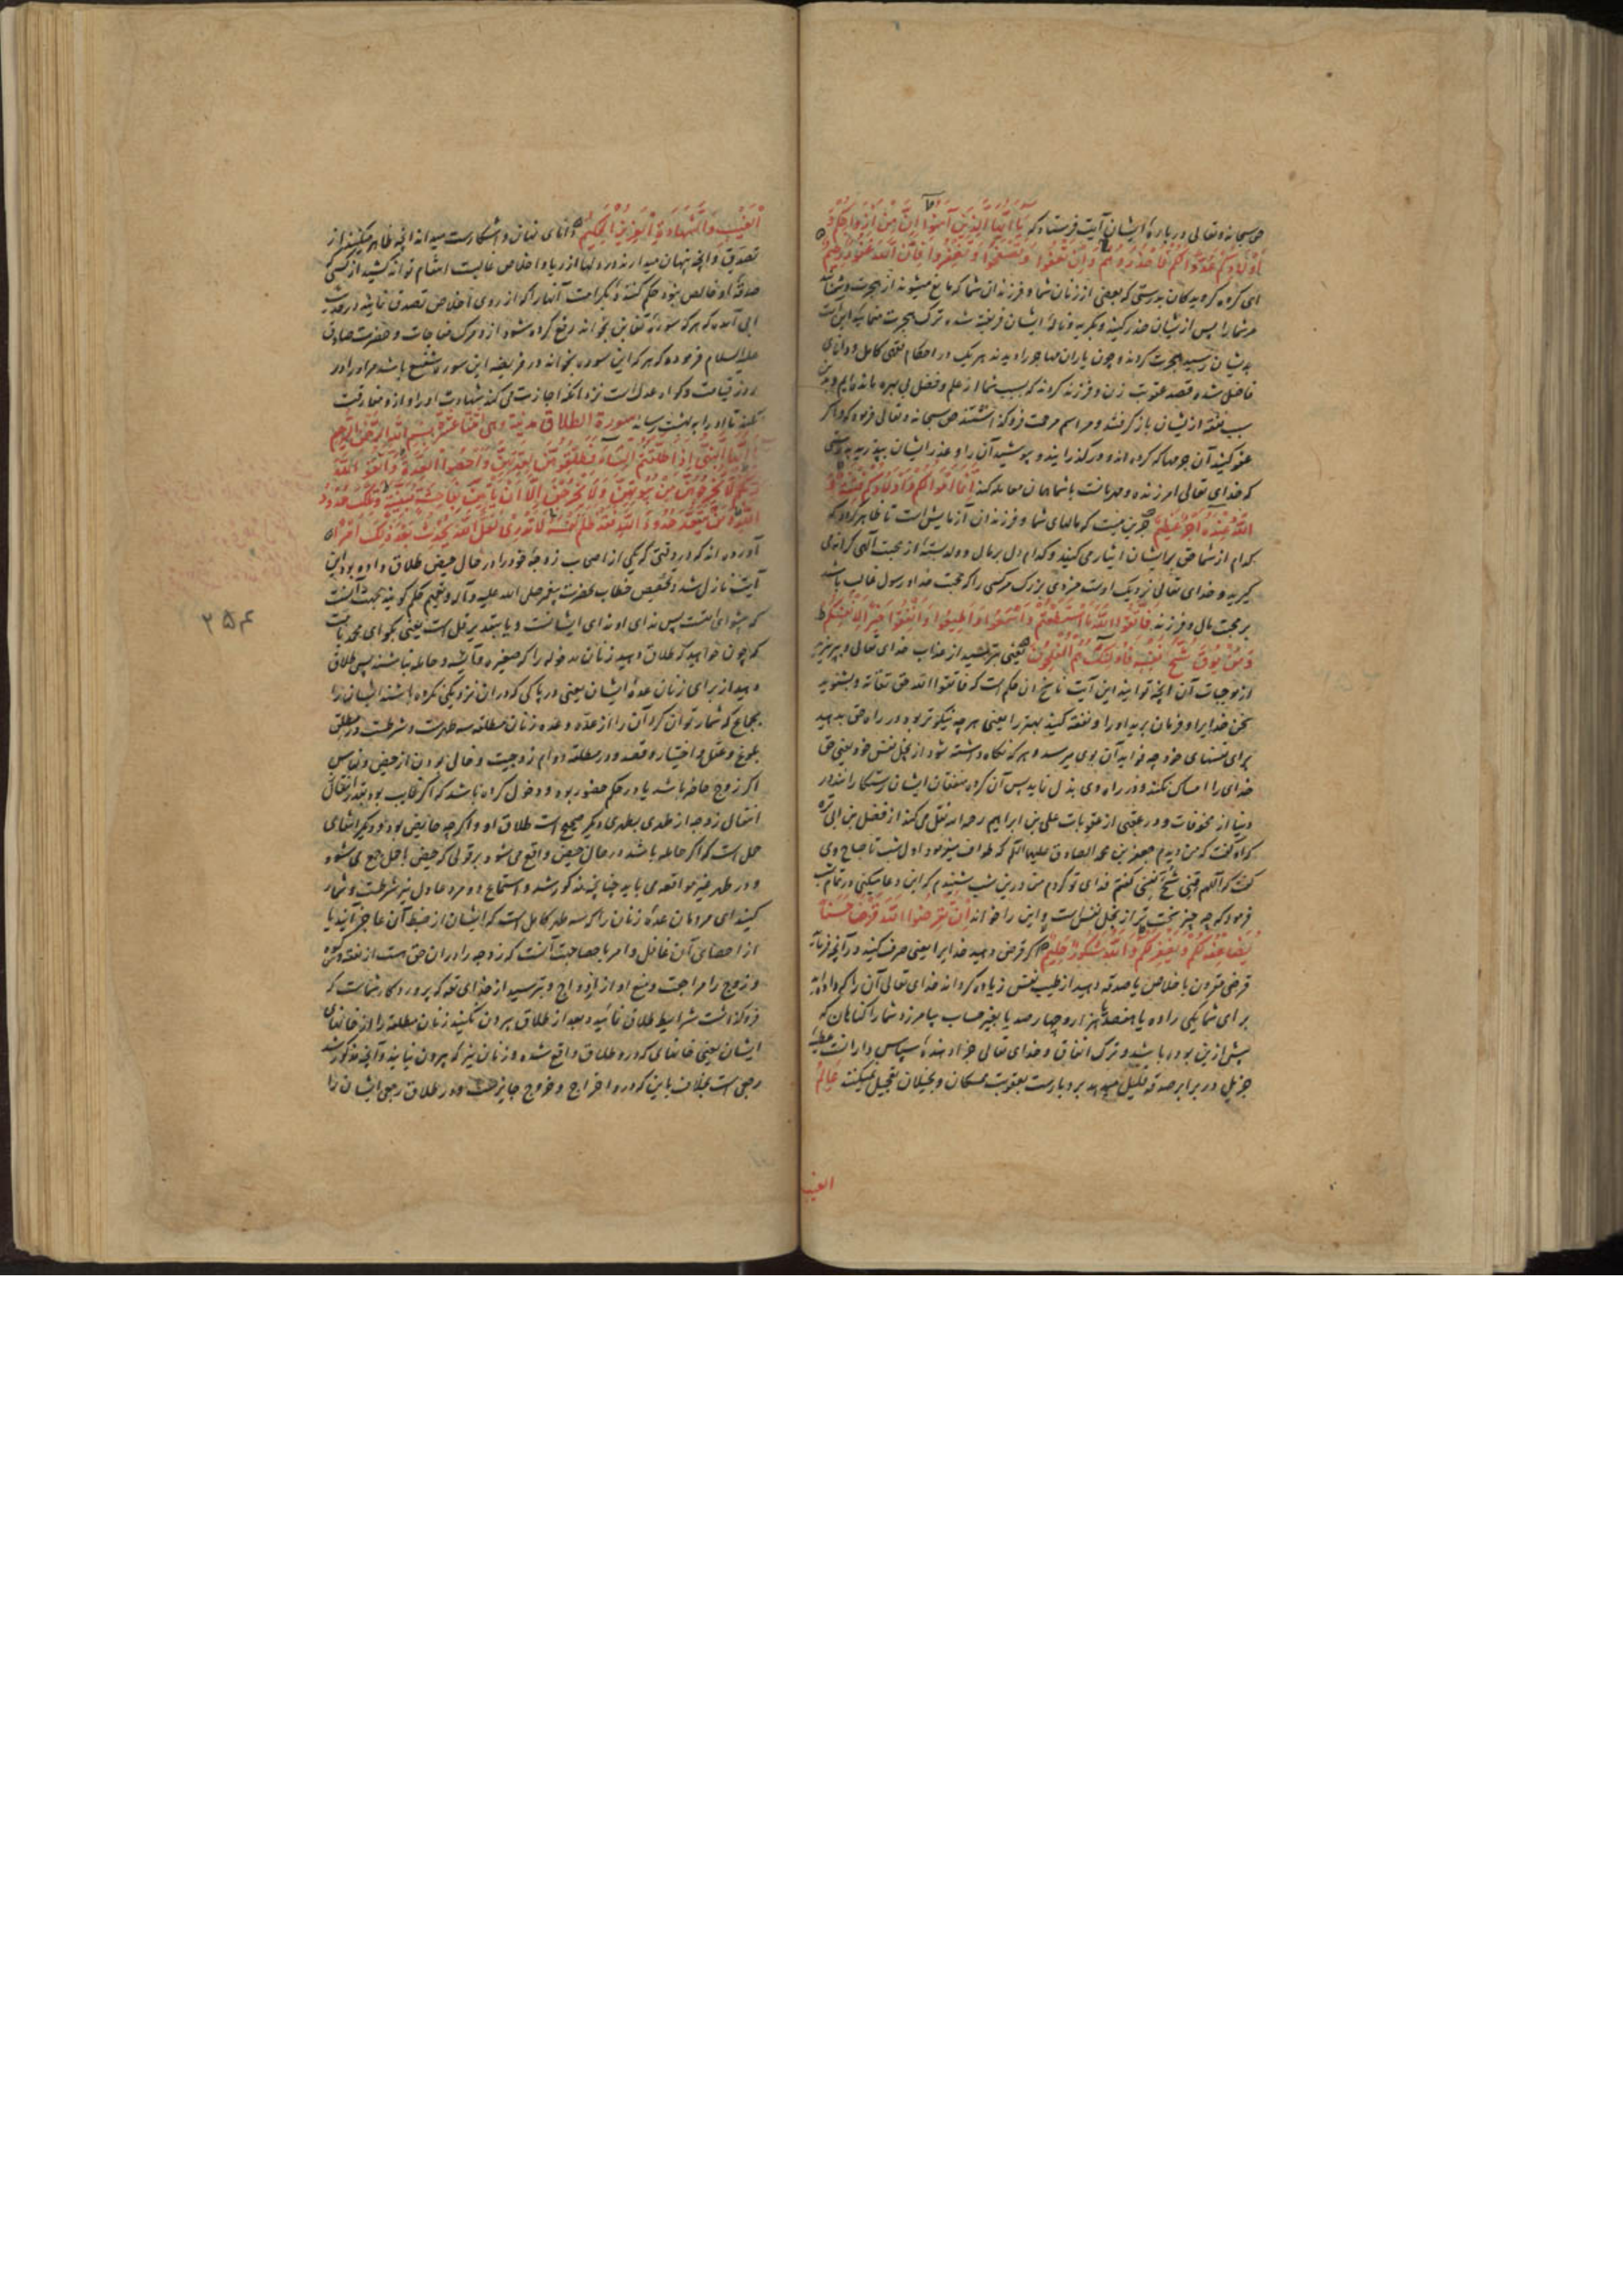 حق سبحانه و تعالی در باره ایشان آیت فرستاد که یَا أَیُّهَا الَّذِینَ آمَنُوا إِنَّ مِنْ أَزْوَاجِکُمْ وَ
أَوْلَادِکُمْ عَدُوًّا لَکُمْ فَاحْذَرُوهُمْ وَإِنْ تَعْفُوا وَتَصْفَحُوا وَتَغْفِرُوا فَإِنَّ اللَّهَ غَفُورٌ رَحِیمٌ
ای گروه گرویدگان بدرستی که بعضی از زنان شما و فرزندان شما که مانع میشوند از هجرت
مر شما را پس از یشان حذر کنید و بگریه و نالهٔ ایشان فریفته شده ترک هجرت منمایید این آیت
بدیشان رسید هجرت کردند و چون یاران مهاجر را دیدند هر یک در احکام فقهی کامل و دانای
فاضل شده قصد عقوبت زن و فرزند کردند که بسبب شما از علم و فضل بی بهره مانده ایم
سبب نفقه از یشان باز گرفتند و مراسم مرحمت فرو گذاشتند حق سبحانه و تعالی فرمود که و اگر
عفو کنید آن جرمها که کرده اند و در گذرانید و بپوشید آن را و عذر ایشان بپذیرید بدرستی
که خدای تعالی امرزنده و مهربانست با شما همان معامله کند إِنَّمَا أَمْوَالُکُمْ وَأَوْلَادُکُمْ فِتْنَةٌ وَ
اللَّهُ عِنْدَهُ أَجْرٌ عَظِیمٌ جز این نیست که مالهای شما و فرزندان آزمایش است تا ظاهر گردد که
کدام از شما حق بر ایشان ایثار می کنید و کدام دل بر مال و ولد بسته از محبت الهی کرانه می
گیرید و خدای تعالی نزدیک اوست مزدی بزرگ مر کسی را که محبت خدا و رسول غالب باشد
بر محبت مال و فرزند فَاتَّقُوا اللَّهَ مَا اسْتَطَعْتُمْ وَاسْمَعُوا وَأَطِیعُوا وَأَنْفِقُوا خَیْرًا لِأَنْفُسِکُمْ
وَمَنْ یُوقَ شُحَّ نَفْسِهِ فَأُولَئِکَ هُمُ الْمُفْلِحُونَ یعنی بترسید از عذاب خدای تعالی و بپرهیزید
از موجبات آن آنچه توانید این آیت ناسخ آن حکم است که فاتقوا الله حق تقاته و بشنوید
سخن خدایرا و فرمان برید او را و نفقه کنید بهتر را یعنی هر چه نیکوتر بود در راه حق بدهید
برای نفسهای خود چه فواید آن بوی میرسد و هر که نگاه داشته شود از بخل نفس خود یعنی حق
خدای را امساک نکند و در راه وی بذل نماید پس آن گروه منفقان ایشان رستگارانند در
دنیا از مخوفات و در عقبی از عقوبات علی بن ابراهیم رحمه الله نقل می کند از فضل بن ابی قره
که او گفت که من دیدم جعفر بن محمد الصادق علیهما السلم که طواف مینمود اول شب تا صباح و می
گفت که اللهم قنی شح نفسی گفتم فدای تو گردم من درین شب شنیدم که این دعا میکنی در تمام شب
فرمود که چه چیز سخت تر از بخل نفس است و این را خواند إِنْ تُقْرِضُوا اللَّهَ قَرْضًا حَسَنًا
یُضَاعِفْهُ لَکُمْ وَیَغْفِرْ لَکُمْ وَاللَّهُ شَکُورٌ حَلِیمٌ اگر قرض دهید خدایرا یعنی صرف کنید در آنچه فرماید
قرضی مقرون با خلاص یا صدقه دهید از طیب نفس زیاده گرداند خدای تعالی آن را که داده اید
برای شما یکی را ده یا هفصد یا هزار و چهار صد یا بغیر حساب بیامرزد شما را گناهان که
پیش ازین بوده باشد و ترک انفاق و خدای تعالی جزا دهندهٔ سپاس دارانست
جزیل در برابر صدقه قلیل میدهد بردبارست بعقوبت ممسکان و بخیلان تعجیل نمیکند عَالِمُ
الغیب
الْغَیْبِ وَالشَّهَادَةِ الْعَزِیزُ الْحَکِیمُ دانای نهان و آشکارست میداند آنچه ظاهر میکنند از
تصدیق و آنچه پنهان میدارند در دلها از ریا و اخلاص غالبست انتقام تواند کشید از کسی که
صدقهٔ او خالص نبود حکم کننده بکرامت آنها را که از روی اخلاص تصدق نمایند در حدیث
ابی آمده که هر که سورهٔ تغابن بخواند رفع کرده شود از و مرگ مفاجات و حضرت صادق
علیه السلام فرموده که هر که این سوره بخواند در فریضه این سوره شفیع باشد مر او را در
روز قیامت و گواه عدل است نزد آنکه اجازت می کند شهادت او را و ازو مفارقت
نکند تا او را به بهشت رساند سورة الطلاق مدنیة وهی اثنتا عشرة بسم الله الرحمن الرحیم
یَا أَیُّهَا النَّبِیُّ إِذَا طَلَّقْتُمُ النِّسَاءَ فَطَلِّقُوهُنَّ لِعِدَّتِهِنَّ وَأَحْصُوا الْعِدَّةَ وَاتَّقُوا اللَّهَ
رَبَّکُمْ لَا تُخْرِجُوهُنَّ مِنْ بُیُوتِهِنَّ وَلَا یَخْرُجْنَ إِلَّا أَنْ یَأْتِینَ بِفَاحِشَةٍ مُبَیِّنَةٍ وَتِلْکَ حُدُودُ
اللَّهِ وَمَنْ یَتَعَدَّ حُدُودَ اللَّهِ فَقَدْ ظَلَمَ نَفْسَهُ لَا تَدْرِی لَعَلَّ اللَّهَ یُحْدِثُ بَعْدَ ذَلِکَ أَمْرًا
آورده اند که در وقتی که یکی از اصحاب زوجهٔ خود را در حال حیض طلاق داده بود این
آیت نازل شد و تخصیص خطاب بحضرت پیغمبر صلی الله علیه و آله و تعمیم حکم گویند بجهت آنست
که پیشوای امتست پس ندای او ندای ایشانست و یا بتقدیر قل است یعنی بگو ای محمد بامت
که چون خواهید که طلاق دهید زنان مدخوله را که صغیره و آیسه و حامله نباشند پس طلاق
دهید از برای زنان عدهٔ ایشان یعنی در پاکی که در ان نزدیکی نکرده باشند ایشان را
بجماع که شمار توان کرد آن را از عده و عده زنان مطلقه سه طهرست و شرطست در مطلق
بلوغ و عقل و اختیار و قصد و در مطلقه دوام زوجیت و خالی بودن از حیض و نفاس
اگر زوج حاضر باشد یا در حکم حضور بود و دخول کرده باشد که اگر غایب بود بقدر انتقال
انتقالی زوجه از طهری بطهری دیگر صحیح است طلاق او و اگر چه حایض بود و دیگر انتفای
حمل است که اگر حامله باشد در حال حیض واقع می شود بر قولی که حیض با حمل جمع می شود
و در طهر غیر مواقعه می باید چنانچه مذکور شد و استماع دو مرد عادل نیز شرطست و شمار
کنید ای مردمان عدهٔ زنان را که سه طهر کامل است که ایشان از ضبط آن عاجز آیند یا
از احصای آن غافل و امر باحصا بجهت آنست که زوجه را در ان حق هست از نفقه و کسوه
و زوج را مراجعت و منع او از ازدواج و بترسید از خدای تعه که پروردگار شماست که
فرو گذاشت شرایط طلاق نمائید و بعد از طلاق بیرون نکنید زنان مطلقه را از خانهای
ایشان یعنی خانهای که درو طلاق واقع شده و زنان نیز که بیرون نیایند و آنچه مذکور شد
رجعی است بخلاف باین که درو اخراج و خروج جایز است و در طلاق رجعی ایشان را
۲۵۴